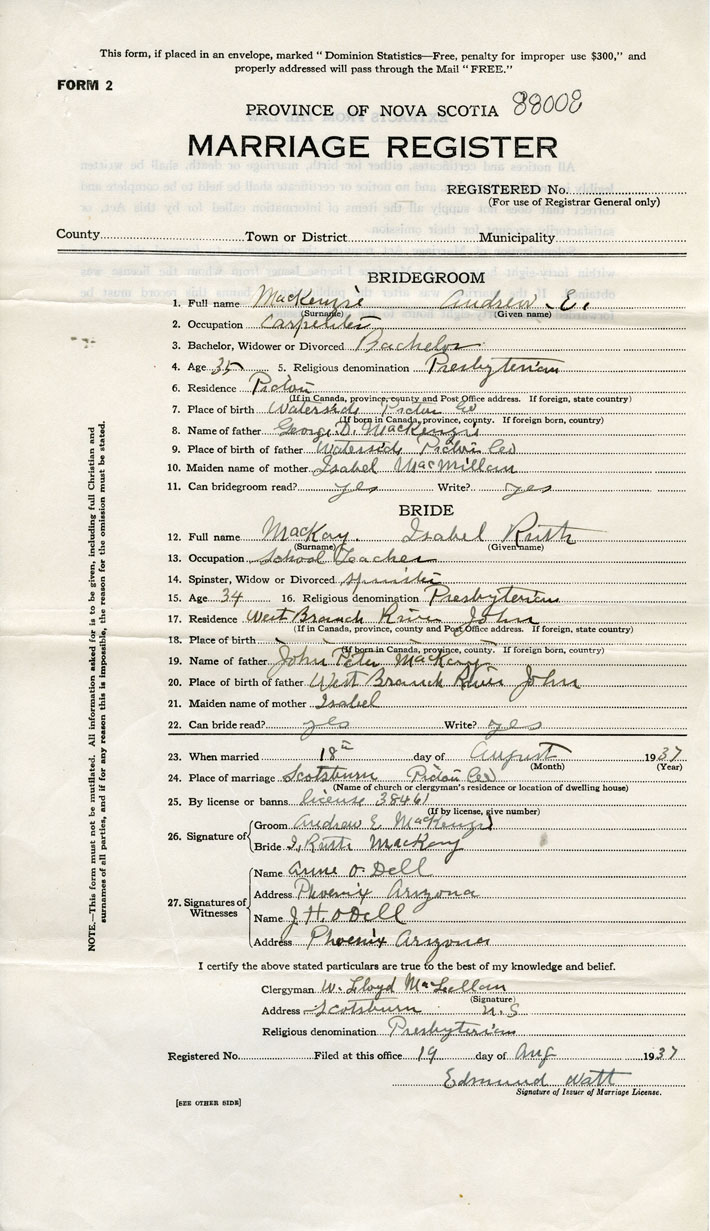 This form, if placed in an envelope, marked “Dominion Statistics—Free, penalty for improper use $300,” and
properly addressed will pass through the Mail “FREE.”
FORM 2
PROVINCE OF NOVA SCOTIA 88008
MARRIAGE REGISTER
REGISTERED No.
(For use of Registrar General only)
County Town or District Municipality
BRIDEGROOM
1. Full name MacKenzie Andrew E.
(Surname) (Given name)
2. Occupation Carpenter
3. Bachelor, Widower or Divorced Bachelor
4. Age 35 5. Religious denomination Presbyterian
6. Residence Pictou
(If in Canada, province, county and Post Office address. If foreign, state country)
7. Place of birth Waterside Pictou Co
(If born in Canada, province, county. If foreign born, country)
8. Name of father George D. MacKenzie
9. Place of birth of father Waterside Pictou Co
10. Maiden name of mother Isabel MacMillan
11. Can bridegroom read? yes Write? yes
BRIDE
12. Full name MacKay. Isabel Ruth
(Surname) (Given name)
13. Occupation School Teacher
14. Spinster, Widow or Divorced Spinster
15. Age 34 16. Religious denomination Presbyterian
17. Residence West Branch River John
(If in Canada, province, county and Post Office address. If foreign, state country)
18. Place of birth
(If born in Canada, province, county. If foreign born, country)
19. Name of father John Peter MacKay
20. Place of birth of father West Branch River John
21. Maiden name of mother Isabel
22. Can bride read? yes Write? yes
23. When married 18th day of August 1937
(Month) (Year)
24. Place of marriage Scotsburn Pictou Co
(Name of church or clergyman's residence or location of dwelling house)
25. By license or banns license 38461
(If by license, give number)
26. Signature of
Groom Andrew E MacKenzie
Bride I, Ruth MacKay
27. Signatures of Witnesses
Name Anne O'Dell
Address Phoenix Arizona
Name J. H. O'Dell
Address Phoenix Arizona
I certify the above stated particulars are true to the best of my knowledge and belief.
Clergyman W. Lloyd MacLellan
(Signature)
Address Scotsburn N.S
Religious denomination Presbyterian
Registered No. Filed at this office 19 day of Aug 1937
Edmund Watt
Signature of Issuer of Marriage License.
[SEE OTHER SIDE]
NOTE.—This form must not be mutilated. All information asked for is to be given, including full Christian and
surnames of all parties, and if for any reason this is impossible, the reason for the omission must be stated.